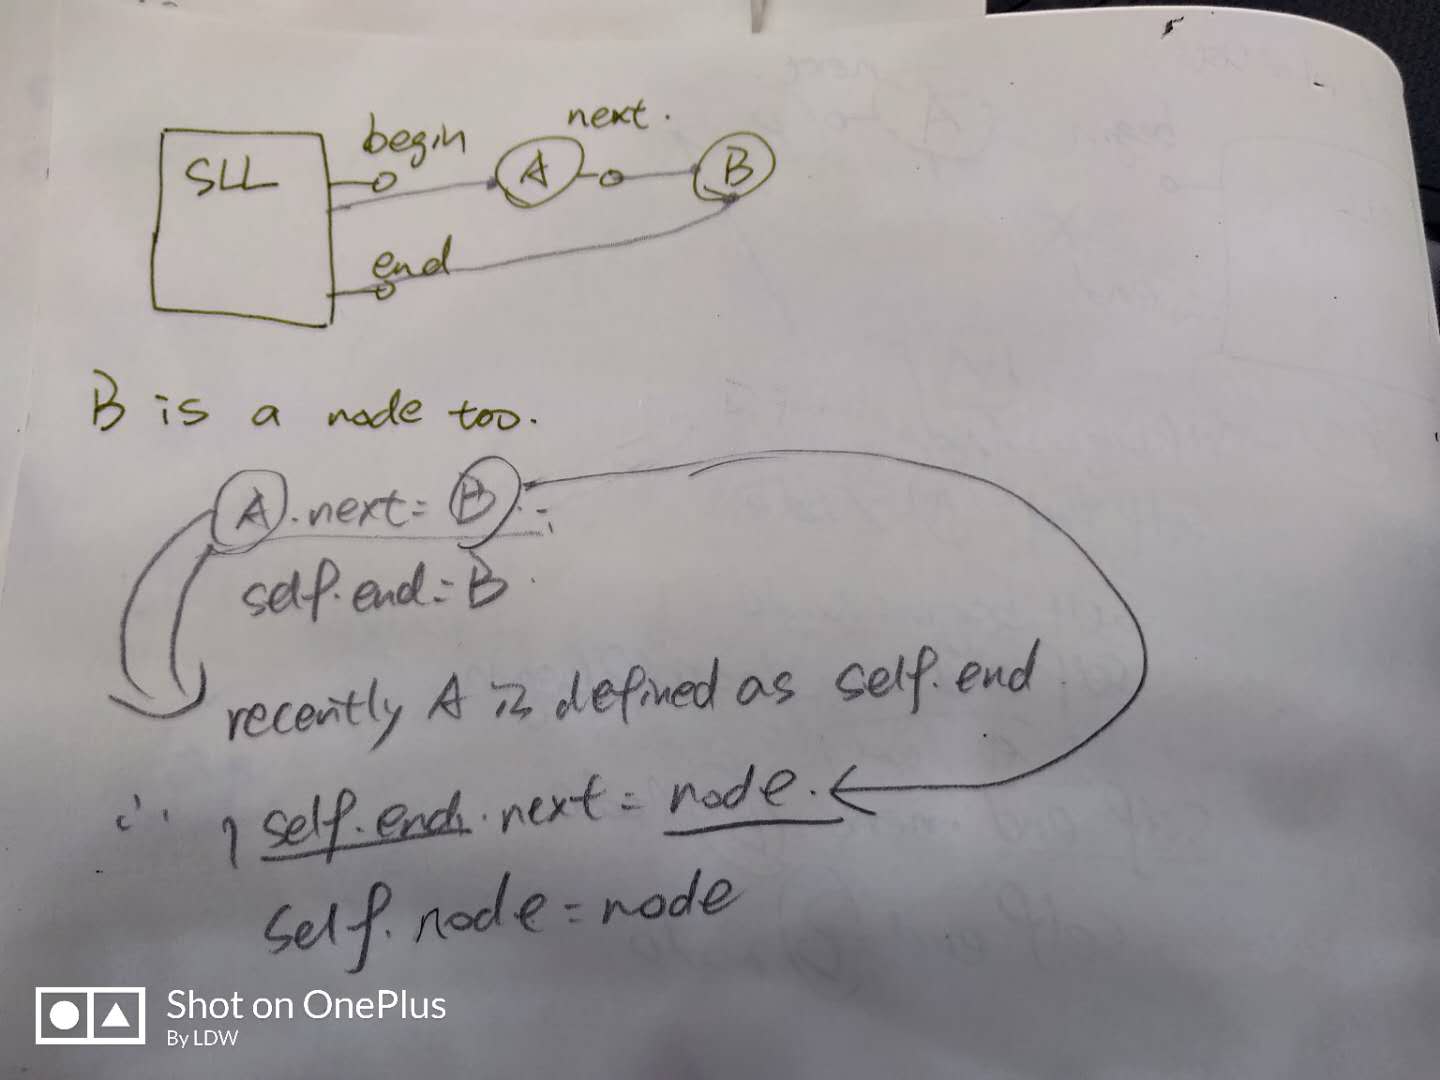 begin next.
SLL A B
end
B is a node too.
A.next = B
self.end = B
recently A is defined as self.end
∴ self.end.next = node.
self.node = node
Shot on OnePlus
By LDW